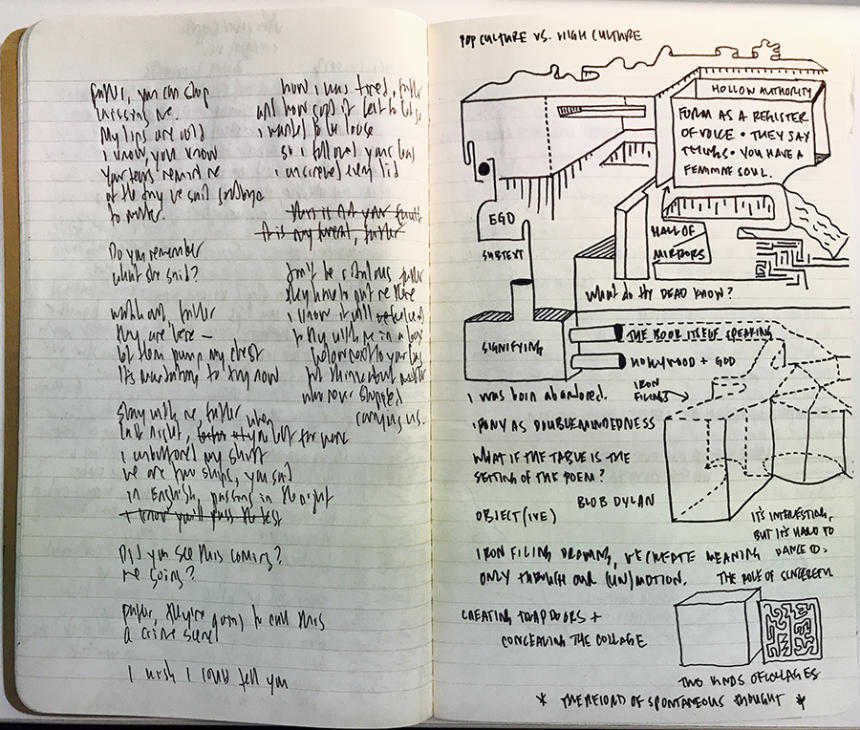 father, you can stop
missing me.
My lips are cold
I know, you know
Your tears remind me
of the day we said goodbye
to mother.
Do you remember
what she said?
watch out, father
they are here —
let them pump my chest
It's mandatory to try now
Stay with me, father
last night, when you left for work
I unbuttoned my shirt
we are two ships, you said
in English, passing in the night
I know you'll pass the test
Did you see this coming?
me going?
father, they're going to call this
a crime scene
I wish I could tell you
how I was tired, father
and how
I wanted to be loose
so I followed your
I unscrewed every lid
this is not your fault
it is my, father
Don't be ridiculous, father
they have to get me there
I know it will
to
next to your
but think about mother
who never stopped
carrying us.
POP CULTURE VS. HIGH CULTURE
HOLLOW AUTHORITY
FORM AS A REGISTER
OF VOICE • THEY SAY
THINGS • YOU HAVE A
FEMININE SOUL.
EGO
SUBTEXT
HALL OF
MIRRORS
WHAT DO THE DEAD KNOW?
SIGNIFYING
THE BOOK ITSELF SPEAKING
HOLLYWOOD + GOD
IRON
FILINGS
I was born abandoned.
IRONY AS DOUBLEMINDEDNESS
WHAT IF THE TABLE IS THE
SETTING OF THE POEM?
BLOB DYLAN
OBJECT(IVE)
IT'S INTERESTING,
BUT IT'S HARD TO
DANCE TO.
IRON FILING DRAWING, WE CREATE MEANING
ONLY THROUGH OUR (UN)MOTION.
THE ROLE OF SINCERITY
CREATING TRAPDOORS +
CONCEALING THE COLLAGE
TWO KINDS OF COLLAGES
* THE RECORD OF SPONTANEOUS THOUGHT *